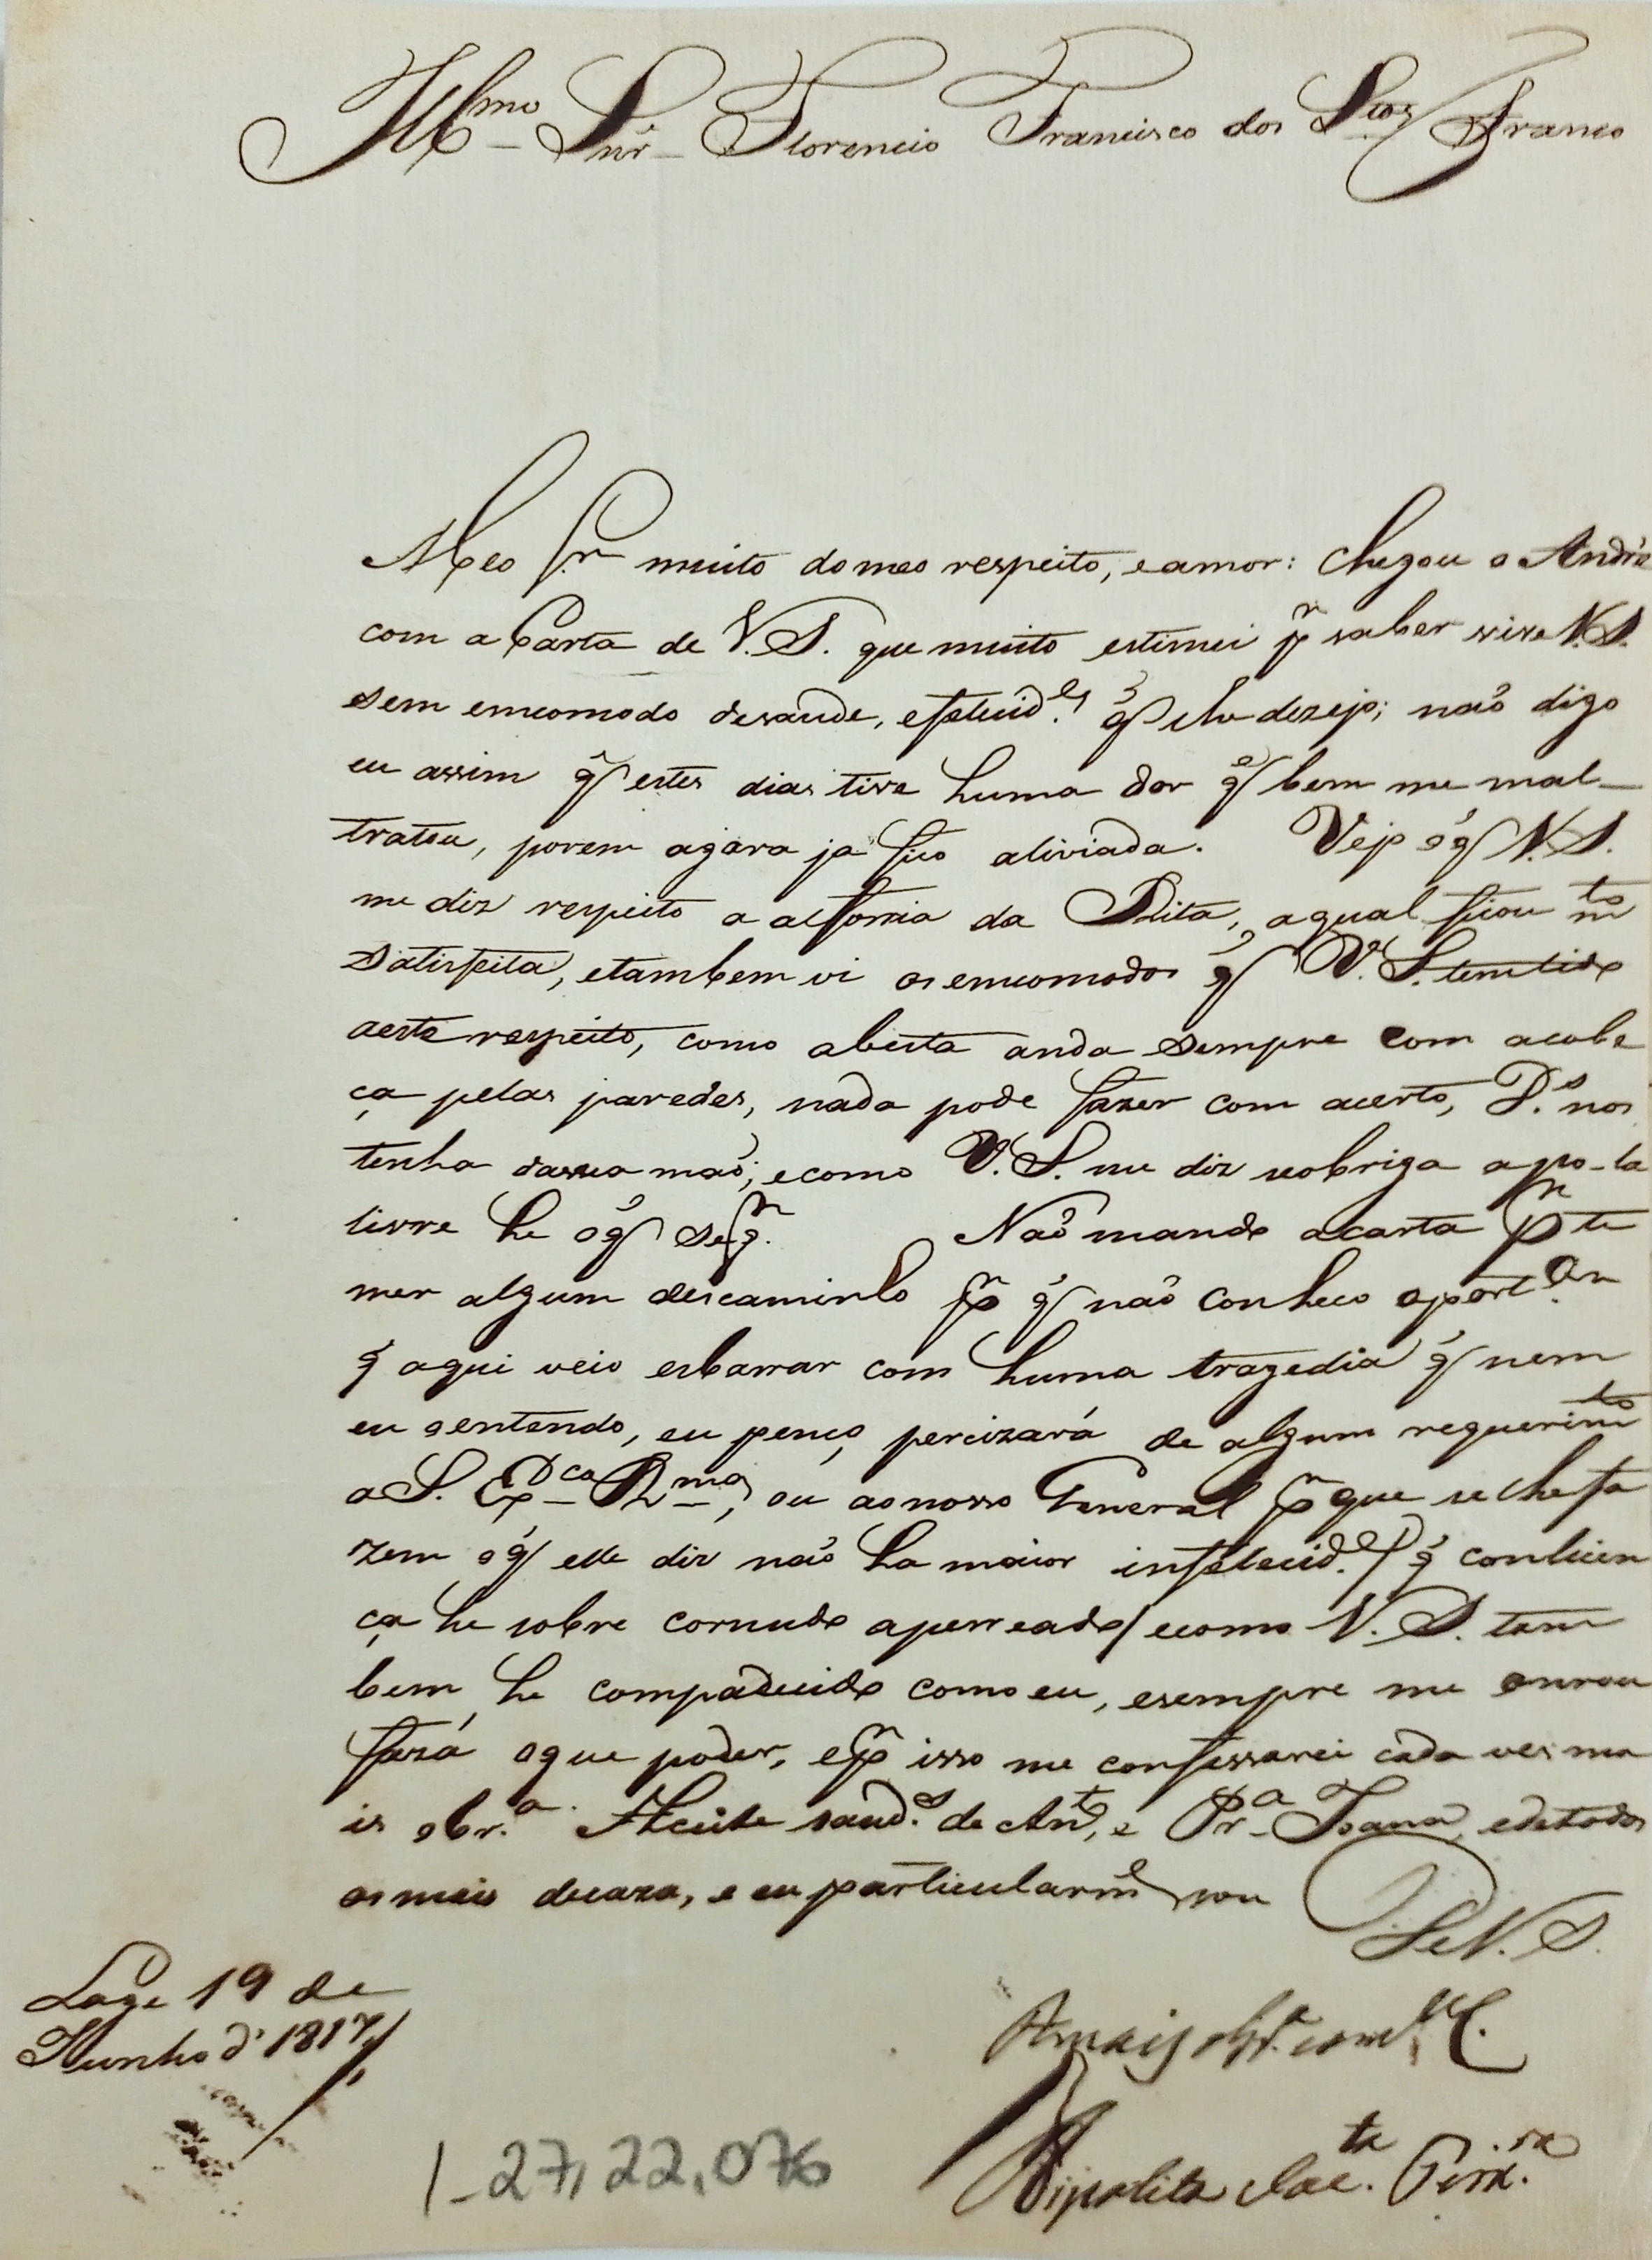 Illmo Snr Florencio Francisco dos Stos Franco
Meo Sr muito do meo respeito, e amor: Chegou o André
com a Carta de V.S. que muito estimei pr saber vive V.S.
sem emcomodo desaude, efelecid.es q̃ lhe dezejo; naõ digo
eu assim q̃ estes dias tive huma dor q̃ bem me mal-
tratou, porem agora ja fico aliviada. Vejo o q̃ V.S.
me diz respeito a alforria da Rita, aqual ficou mto
satisfeita, etambem vi os emcomodos q̃ V.S. tem tido
aeste respeito, como a besta anda sempre com acabe
ça pelas paredes, nada pode fazer com acerto, D.s nos
tenha dasua maõ; ecomo V.S. me diz seobriga a po-la
livre he o q̃ se qr. Naõ mando a carta pr te
mer algum descaminho pr q̃ naõ conheco oport.or
q̃ aqui veio esbarrar com huma tragedia q̃ nem
eu oentendo, eu penço percizará de algum requerimto
a S. Exca Rma, ou ao nosso General pr que se lhe fa
zem o q̃ elle diz naõ ha maior infelecid.e / q̃ conlicen
ça he sobre cornudo aperreado / ecomo V.S. tam
bem he compadecido como eu, esempre me onrou
fará oque poder, epr isso me confessarei cada ves ma
is obr.a. Aceite saud.es de Anto, e Pra Joana, edetodos
os mais decaza, e eu particularmte sou
De V.S.
Lage 19 de
Junho d' 1817
Amais obr.a
Hipolita Jac.ta Teix.ra
1-27,22,076